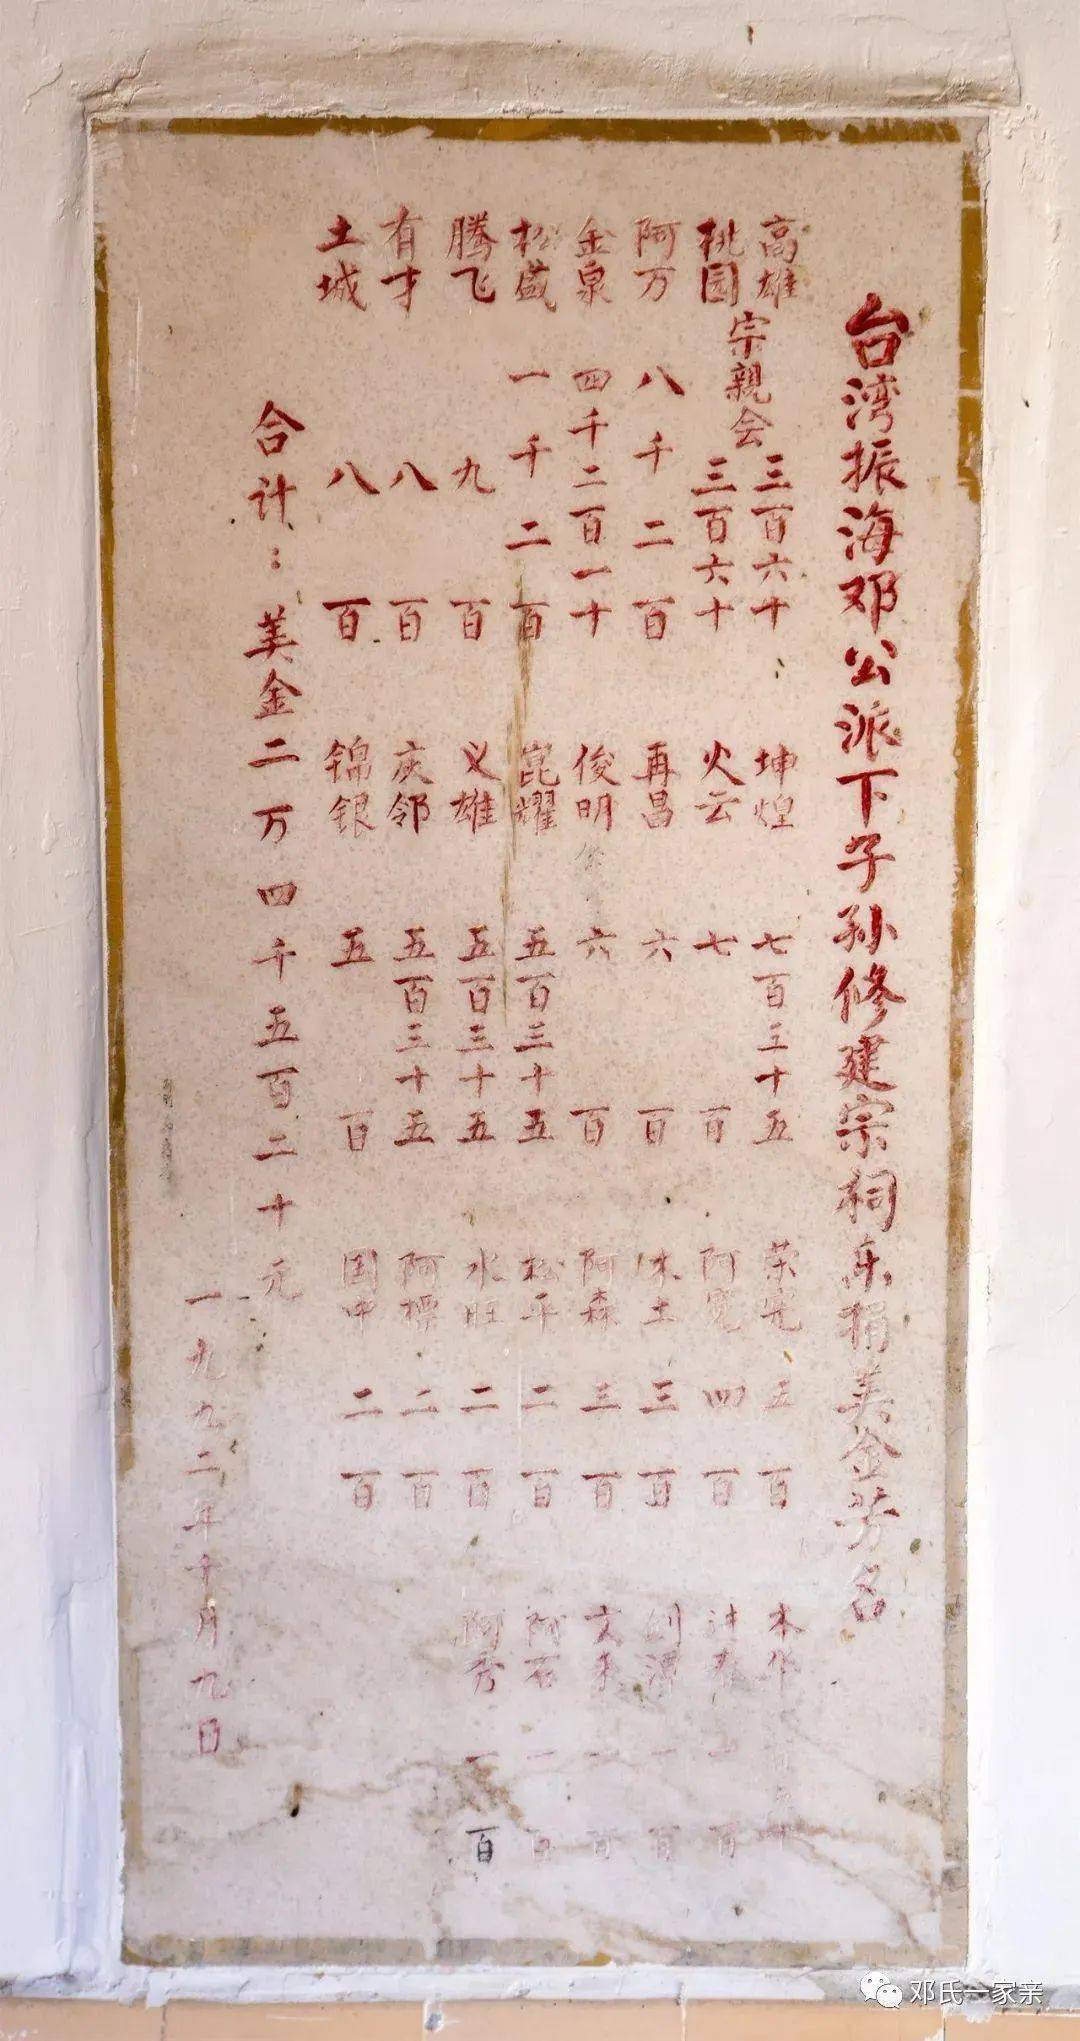 台湾振海邓公派下子孙修建宗祠乐捐美金芳名
高雄 宗親会 三百六十
桃园 宗親会 三百六十
阿万 八千二百
金泉 四千二百一十
松盛 一千二百
腾飞 九百
有才 八百
土城 八百
坤煌 七百三十五
火云 七百
再昌 六百
俊明 六百
崑耀 五百三十五
义雄 五百三十五
庆邻 五百三十五
锦银 五百
荣宪 五百
阿宽 四百
木土 三百
阿森 三百
松平 二百
水旺 二百
阿标 二百
国中 二百
木
春 百
一百
文来 一百
阿石 一百
阿秀 一百
合计：美金二万四千五百二十元
一九九二年十月九日
邓氏一家亲